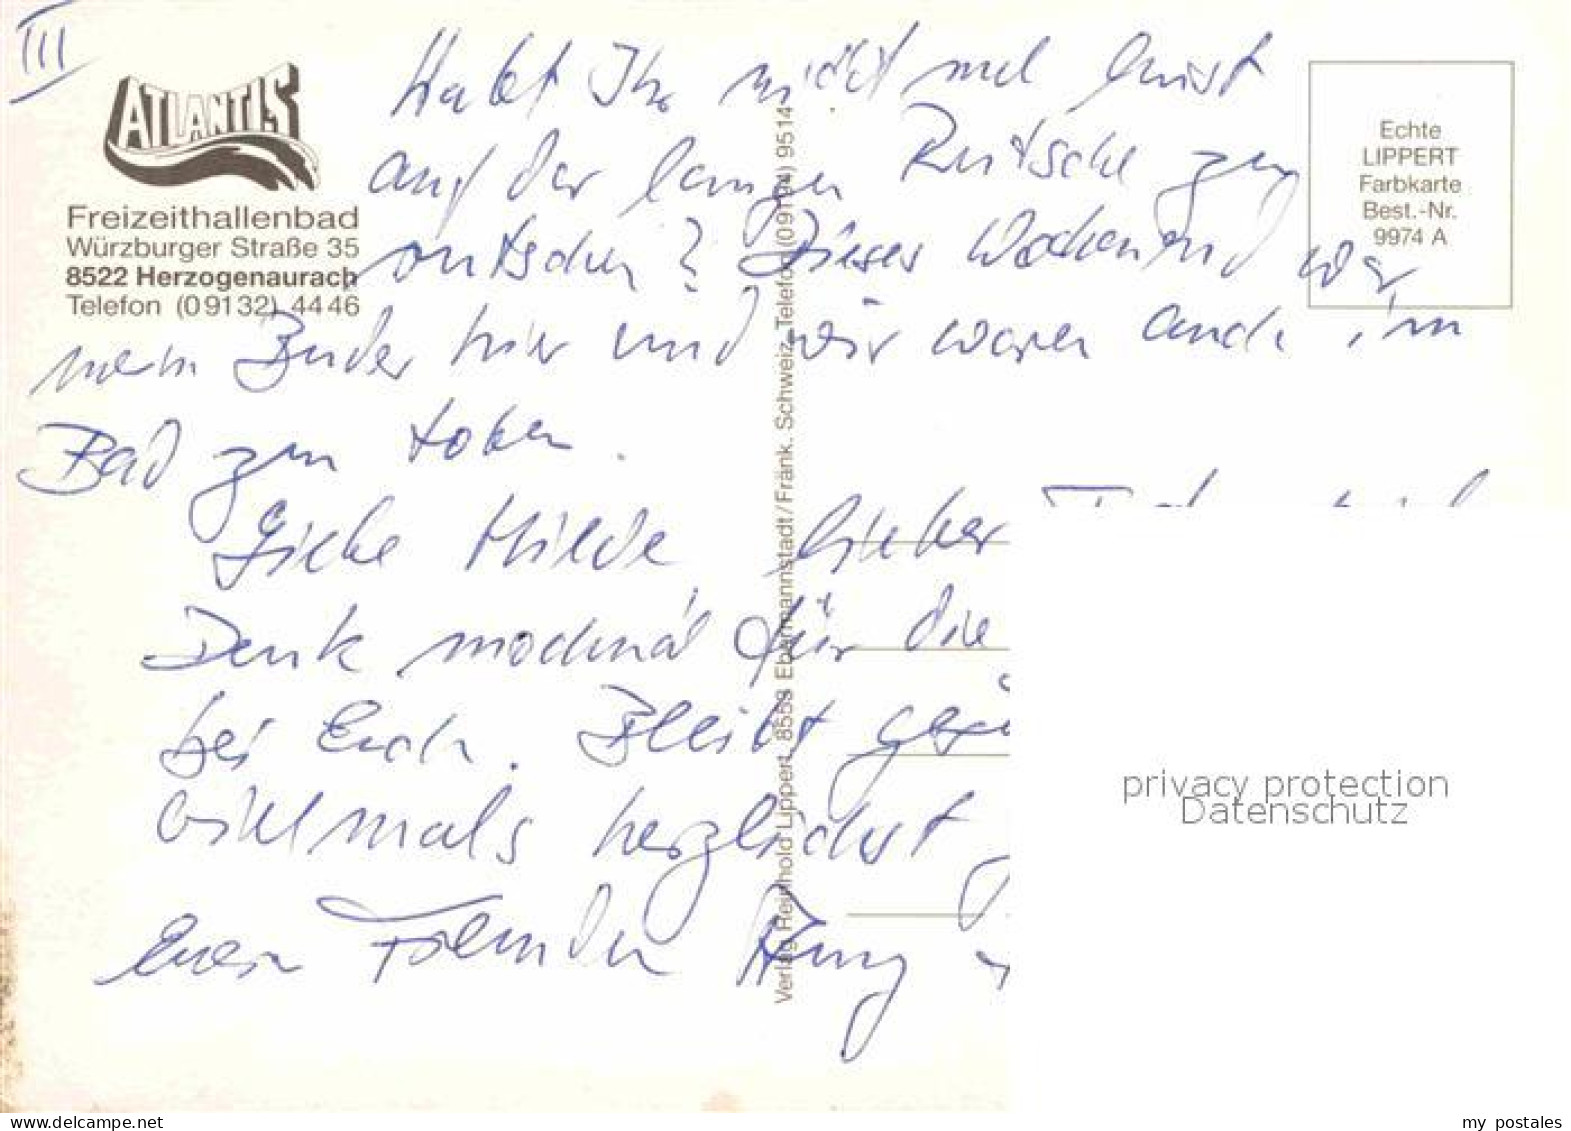 III
ATLANTIS
Freizeithallenbad
Würzburger Straße 35
8522 Herzogenaurach
Telefon (09132) 4446
Habt Ihr nicht mal Lust
auf der langen Rutsche zu
rutschen? Dieses Wochenend war
mein Bruder hier und wir waren auch im
Bad zum toben.
Liebe Hilde, lieber
Dank nochmal für die
bei Euch. Bleibt
vielmals herzlichst
Euer
Verlag Reinhold Lippert, 8553 Ebermannstadt/Fränk. Schweiz, Telefon (09194) 9514
Echte
LIPPERT
Farbkarte
Best.-Nr.
9974 A
privacy protection
Datenschutz
www.delcampe.net
my_postales